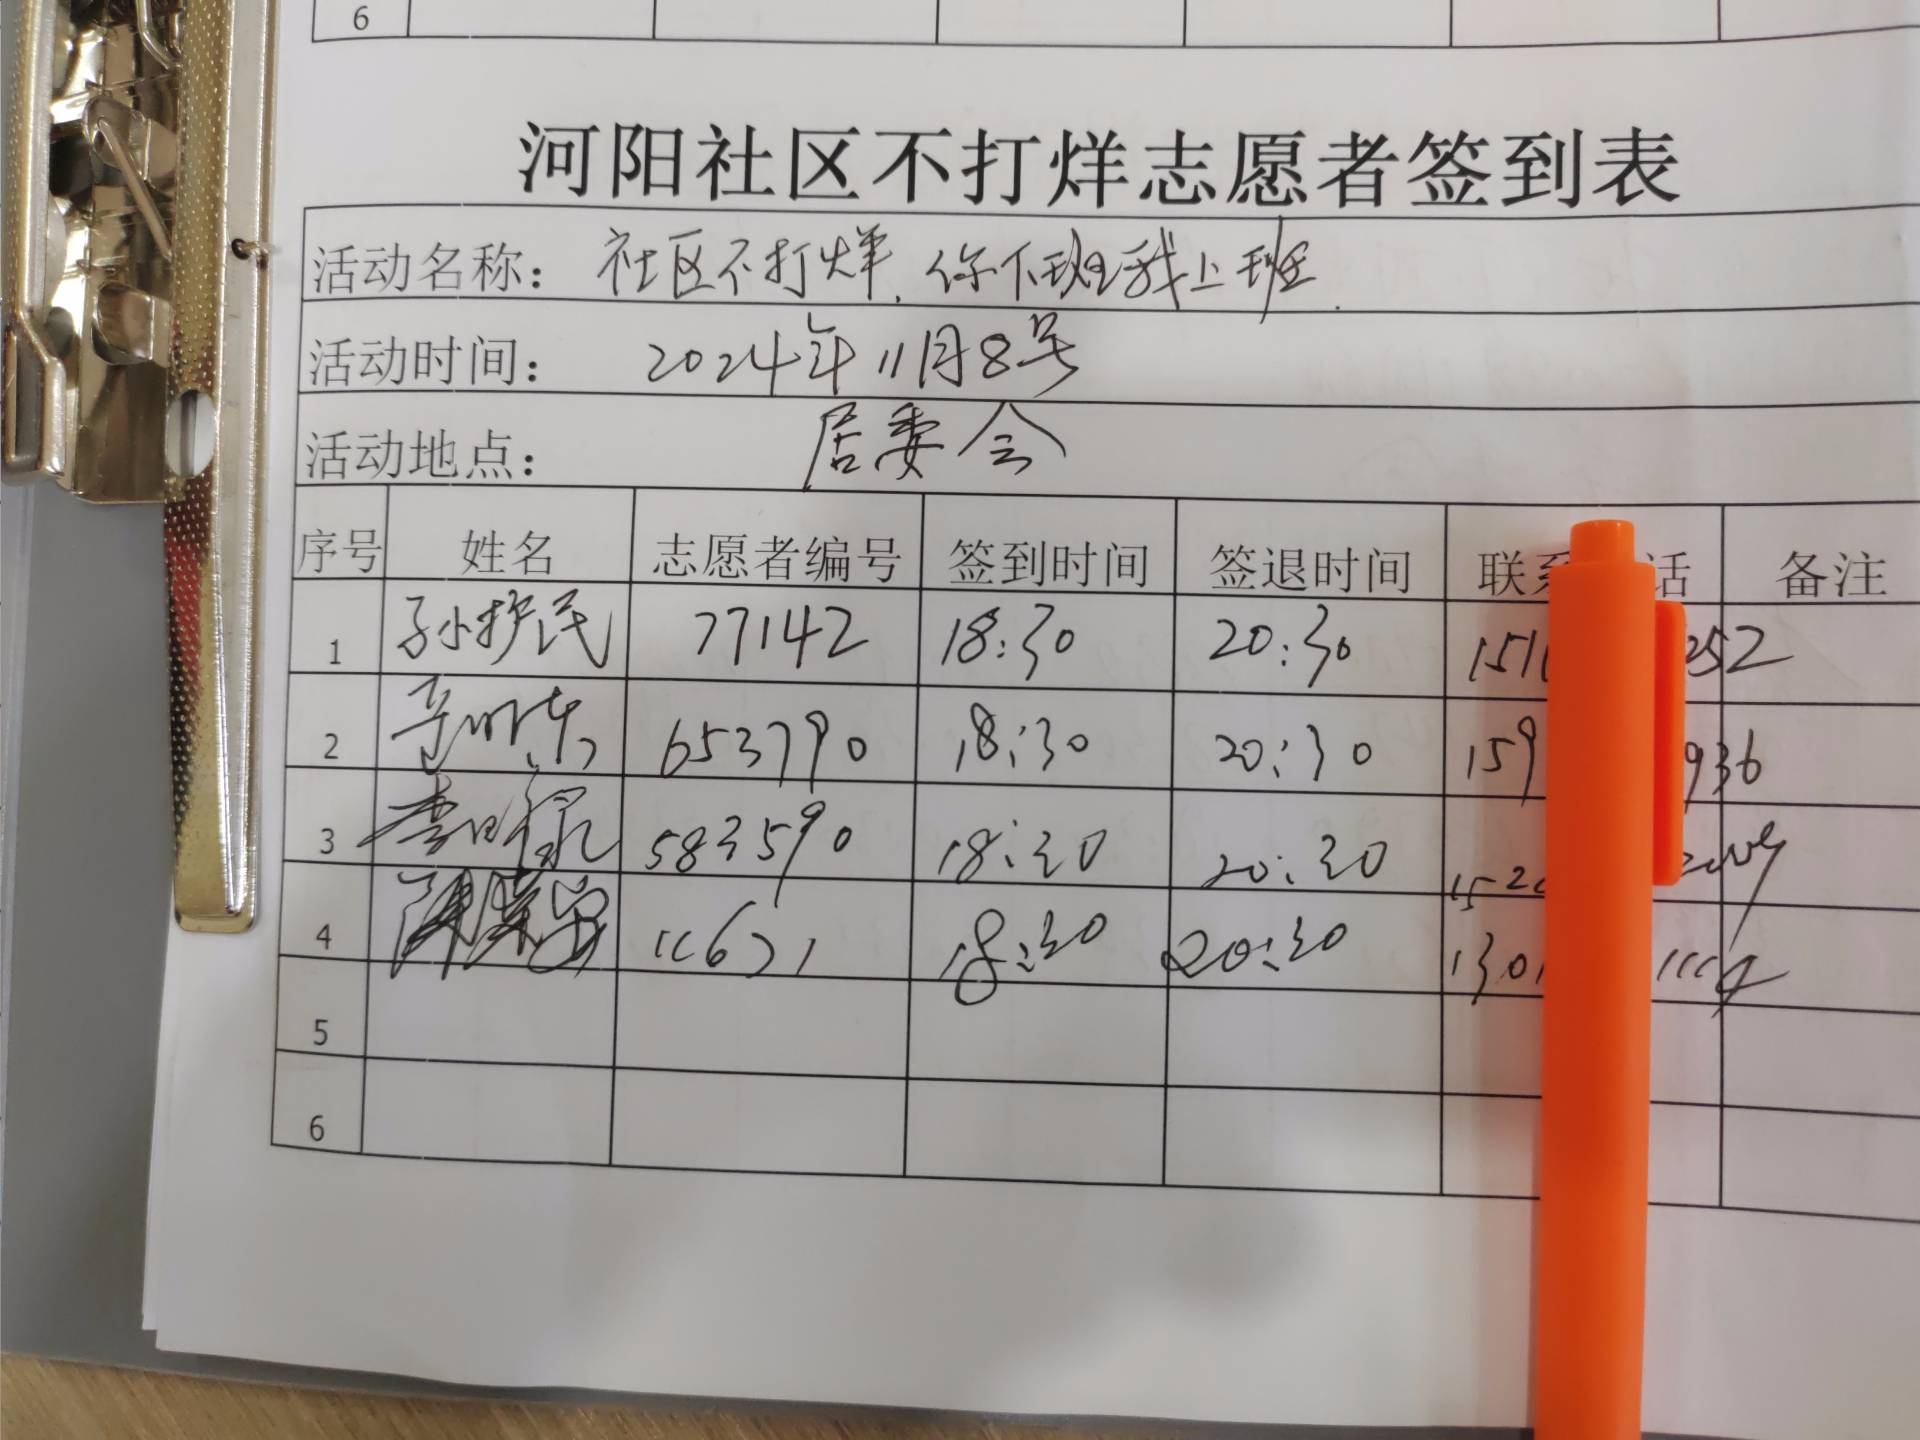 6
河阳社区不打烊志愿者签到表
活动名称： 社区不打烊，你下班我上班
活动时间： 2024年11月8号
活动地点： 居委会
序号 姓名 志愿者编号 签到时间 签退时间 联系 话 备注
1 孙护民 77142 18:30 20:30 151 252
2 653790 18:30 20:30 159 936
3 李 583590 18:30 20:30 152
4 陈 18:30 20:30 1301
5
6